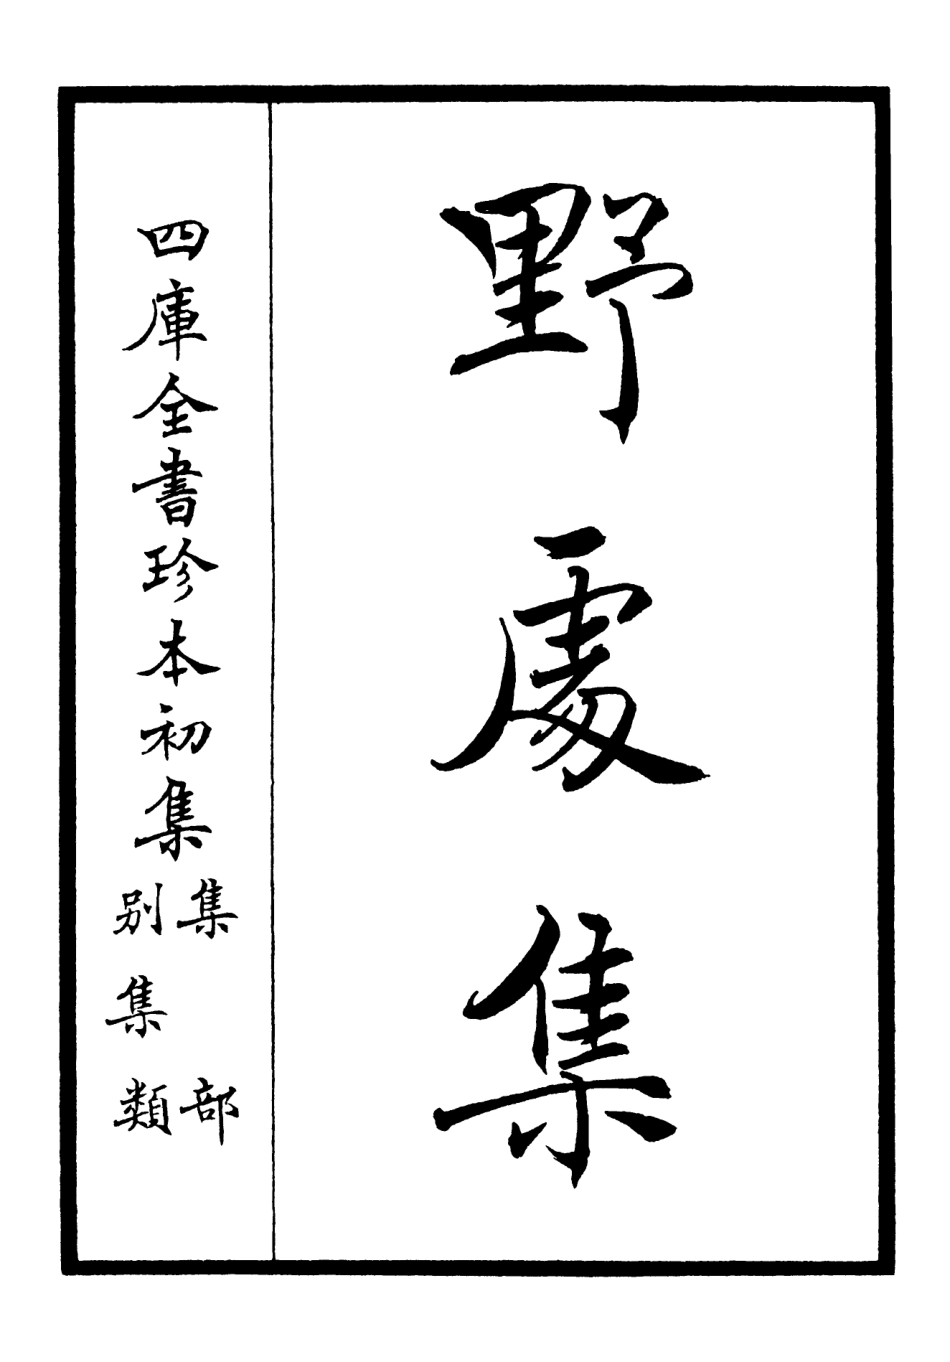 野處集
四庫全書珍本初集
集部
別集類